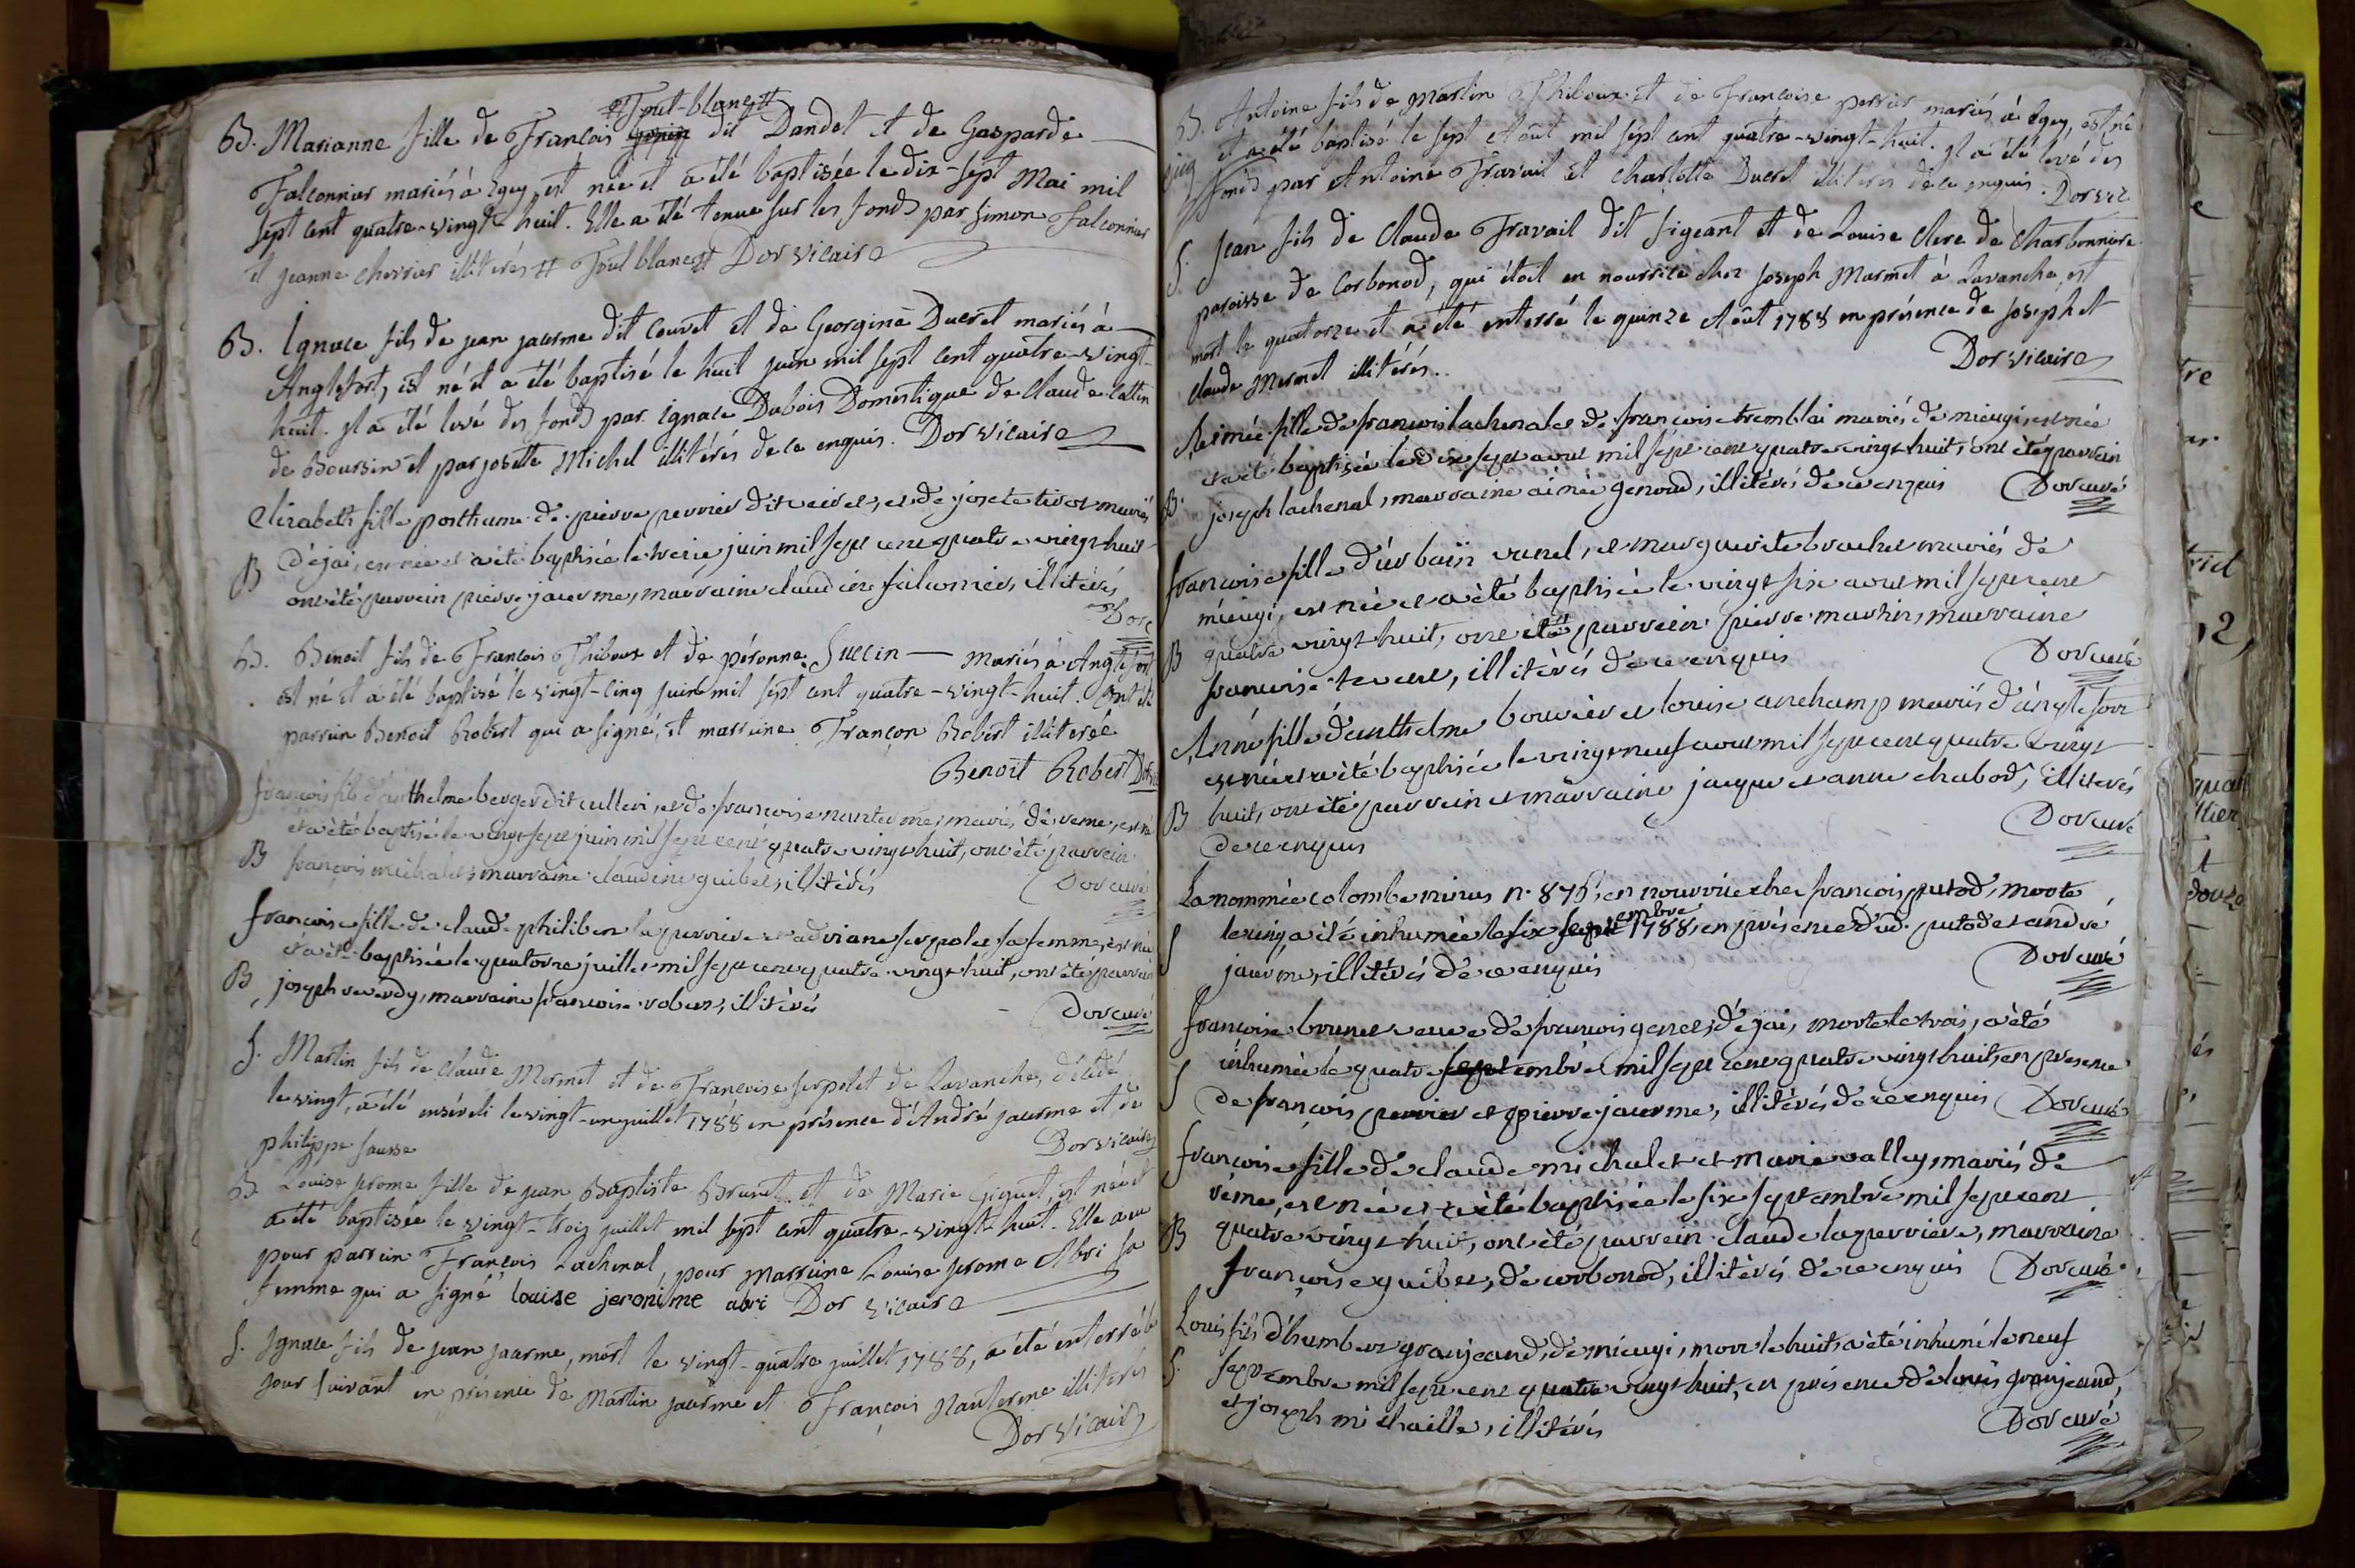 # Toul-blanc #
B. Marianne fille de François dit Dandet et de Gasparde
Falconnier mariés à Egey, est née et a été baptisée le dix-sept Mai mil
sept cent quatre-vingt-huit. Elle a été tenue sur les fonds par Simon Falconnier
et jeanne cherrier illiterés # Toul blanc # Dor vicaire
B. Ignace fils de jean jaerme dit Couvet et de Georgine Ducret mariés à
Anglefort, est né et a été baptisé le huit juin mil sept cent quatre-vingt-
huit. Il a été levé des fonds par Ignace Dubois Domestique de Claude Cattin
de Boursin et par josette Michel illitérés de ce enquis. Dor vicaire
Elizabeth fille posthume de pierre perrier dit veiret, et de josete tivot mariés
B d'ejai, est née et a été baptisée le treize juin mil sept cent quatre vingt huit
ont été parrain pierre jaerme, marraine claudine falconier, illitérés
Dor c
B. Benoit fils de François Thiboux et de péronne Succin — mariés à Anglefort
est né et a été baptisé le vingt-cinq juin mil sept cent quatre-vingt-huit. Ont été
parrain Benoit Robert qui a signé, et marraine Françon Robert illiterée
Benoit Robert Dor
françois fils d'anthelme berger dit culleri, et de françoise nanterme, mariés de veme, est né
et a été baptisé le vingt sept juin mil sept cent quatre vingt huit, ont été parrain
B françois michalet, marraine claudine guibet, illitérés Dor curé
françoise fille de claude philibert laperriere et adriane serpolet sa femme, est née
et a été baptisée le quatorze juillet mil sept cent quatre vingt huit, ont été parrain
B joseph reverdy, marraine françoise robert, illitérés Dor curé
S. Martin fils de Claude Mermet et de Françoise serpolet de Lavanche, décédé
le vingt, a été enséveli le vingt-un juillet 1788 en présence d'André jaerme et de
philippe sausse Dor vicaire
B. Louise jerome fille de jean Baptiste Brunet et de Marie Giguet, est née et
a été baptisée le vingt-trois juillet mil sept cent quatre-vingt-huit. Elle a eu
pour parrain François Lachenal, pour marraine Louise jerome Abri sa
femme qui a signé louise jeronime abri Dor vicaire
S. Ignace fils de jean jaerme, mort le vingt-quatre juillet 1788, a été enterré le
jour suivant en présence de Martin jaerme et François Nanterme illiterés
Dor vicaire
B. Antoine fils de Martin Thiboux et de Françoise perrier mariés à Egey, est né
et a été baptisé le sept Août mil sept cent quatre-vingt-huit. Il a été levé des
fonds par Antoine Travail et Charlotte Ducret illiterés de ce enquis. Dor vic
S. Jean fils de Claude Travail dit sigeant et de Louise Clerc de Charbonniere
paroisse de Corbonod, qui étoit en nourrice chez Joseph Marmet à Lavanche, est
mort le quatorze et a été enterré le quinze Août 1788 en présence de Joseph et
Claude Mermet illitérés.. Dor vicaire
Aimée fille de francois lachenal et de francoise tremblai mariés de mieugi, est née
et a été baptisée le dix sept aout mil sept cent quatre vingt huit, ont été parrain
B. joseph lachenal, marraine aimée genoud, illitérés de ce enquis Dor curé
françoise fille d'urbain vanel, et marguerite brachet mariés de
mieugi, est née et a été baptisée le vingt six aout mil sept cent
B quatre vingt huit, ont été parrein pierre martin, marraine
francoise tevenet, illitérés de ce enquis Dor curé
Anne fille d'anthelme bouvier et louise anchamp mariés d'anglefort
est née et a été baptisée le vingt neuf aout mil sept cent quatre vingt
B huit, ont été parrein et marraine jacque et anne chabod, illiterés
de ce enquis Dor curé
La nommée colombe minus n. 875, en nourrice chez françois putod, morte
le cinq a été inhumée le six septembre 1788, en présence dud. putod et andré
S jaerme, illitérés de ce enquis Dor curé
francoise brunet veuve de francois genet, d'ejai, morte le trois, a été
inhumée le quatre septembre mil sept cent quatre vingt huit, en presence
S de françois perrier et pierre jaerme, illitérés de ce enquis Dor curé
francoise fille de claude michalet et marie valley, mariés de
véme, est née et a été baptisée le six septembre mil sept cent
B quatre vingt huit, ont été parrein claude laperriere, marraine
françoise guibet, de corbonod, illitérés de ce enquis Dor curé
Louis fils d'humbert granjeand, de mieugi, mort le huit, a été inhumé le neuf
S. septembre mil sept cent quatre vingt huit, en présence de louis granjeand,
et joseph michaille, illitérés Dor curé